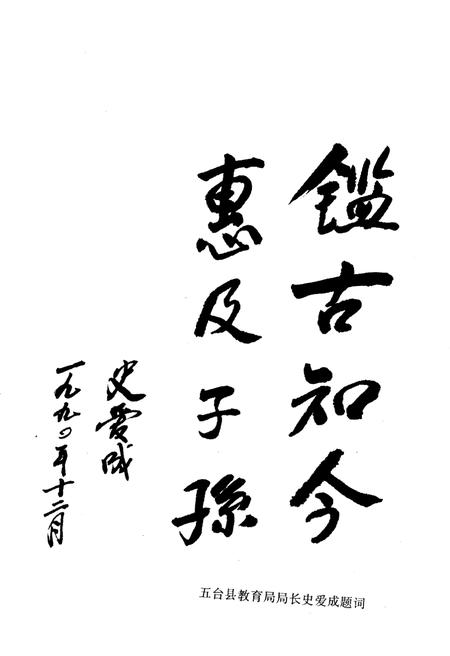 鑑古知今
惠及子孫
史爱成
一九九〇年十二月
五台县教育局局长史爱成题词